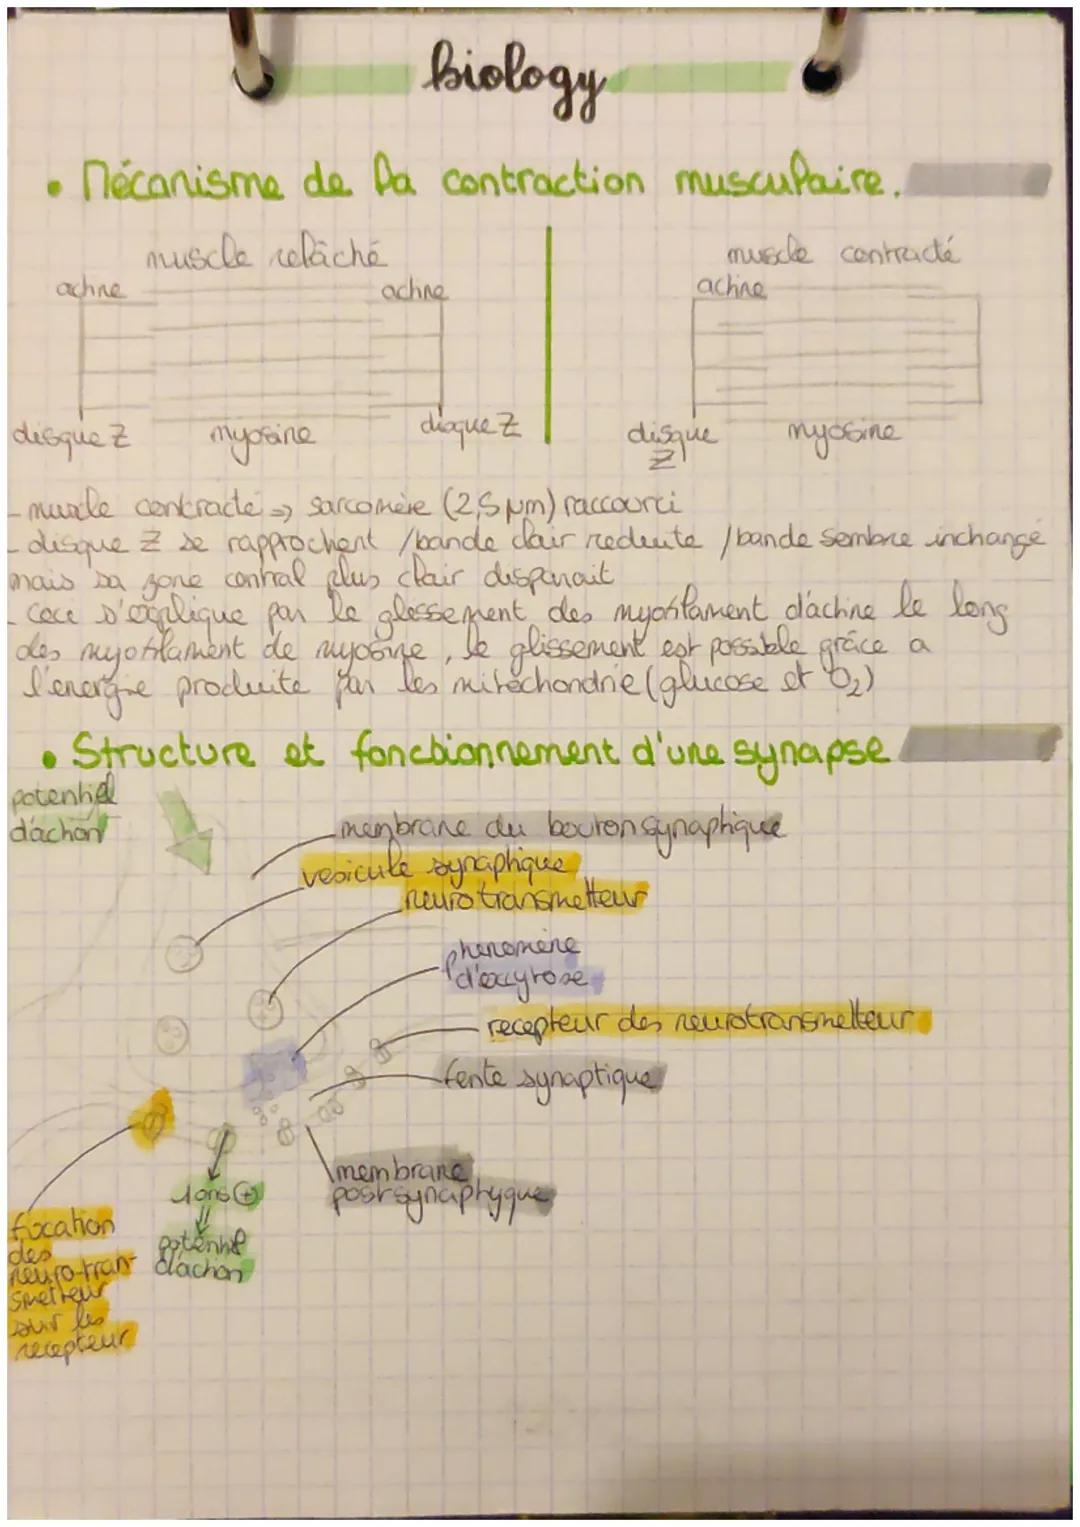 biology
• Mécanisme de la contraction musculaire.
muscle relâché
muscle contracté
actine
actine
actine
disque Z
myosine
disque Z
disque
Z
myosine
- muscle contracté => sarcomère (2,5 µm) raccourci
- disque Z se rapprochent / bande clair reduite / bande sombre inchangé
mais sa zone central plus clair disparait
- ceci s'explique par le glissement des myofilament d'actine le long
des myofilament de myosine, le glissement est possible grâce a
l'energie produite par les mitochondrie (glucose et O₂)
• Structure et fonctionnement d'une synapse
potentiel
d'action
membrane du bouton synaptique
vesicule synaptique
neurotransmetteur
phenomène
d'exocytose
recepteur des neurotransmetteur
fente synaptique
membrane
postsynaptyque
ions (+)
potentiel
d'action
fixation
des
neuro-tran-
smetteur
sur les
recepteur